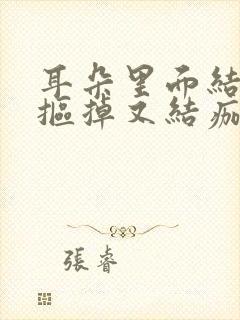 耳朵里而結
摳掉又結痂
張睿